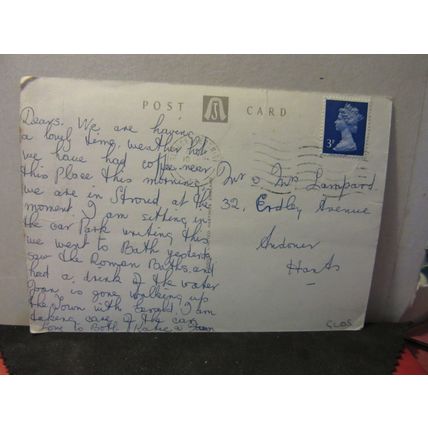 POST CARD
Dears, We are having
a lovely time, weather hot
we have had coffee near
this Place this morning
we are in Stroud at the
moment I am sitting in
the car Park writing this
we went to Bath yesterday
saw the Roman Baths, and
had a drink of the water
Joan is gone walking up
the Town with Gerald, I am
taking care of the car
Love to Both
3P
Mr & Mrs Lampard
32, Erdley Avenue
Andover
Hants
GLOS